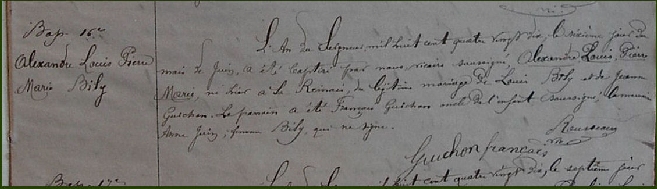 Bap. 16e
Alexandre Louis Pierre
Marie Bily
L'An du Seigneur mil huit cent quatre vingt dix, le sixième jour du
mois de Juin, a été baptisé par nous vicaire soussigné, Alexandre Louis Pierre
Marie, né hier à la de légitime mariage de Louis Bily et de Jeanne
Guichon. Le parrain a été François Guichon oncle de l'enfant soussigné; la marraine
Anne femme Bily, qui ne signe.
Guichon francois
Bap. 17e
L'An du Seigneur mil huit cent quatre vingt dix, le septième jour